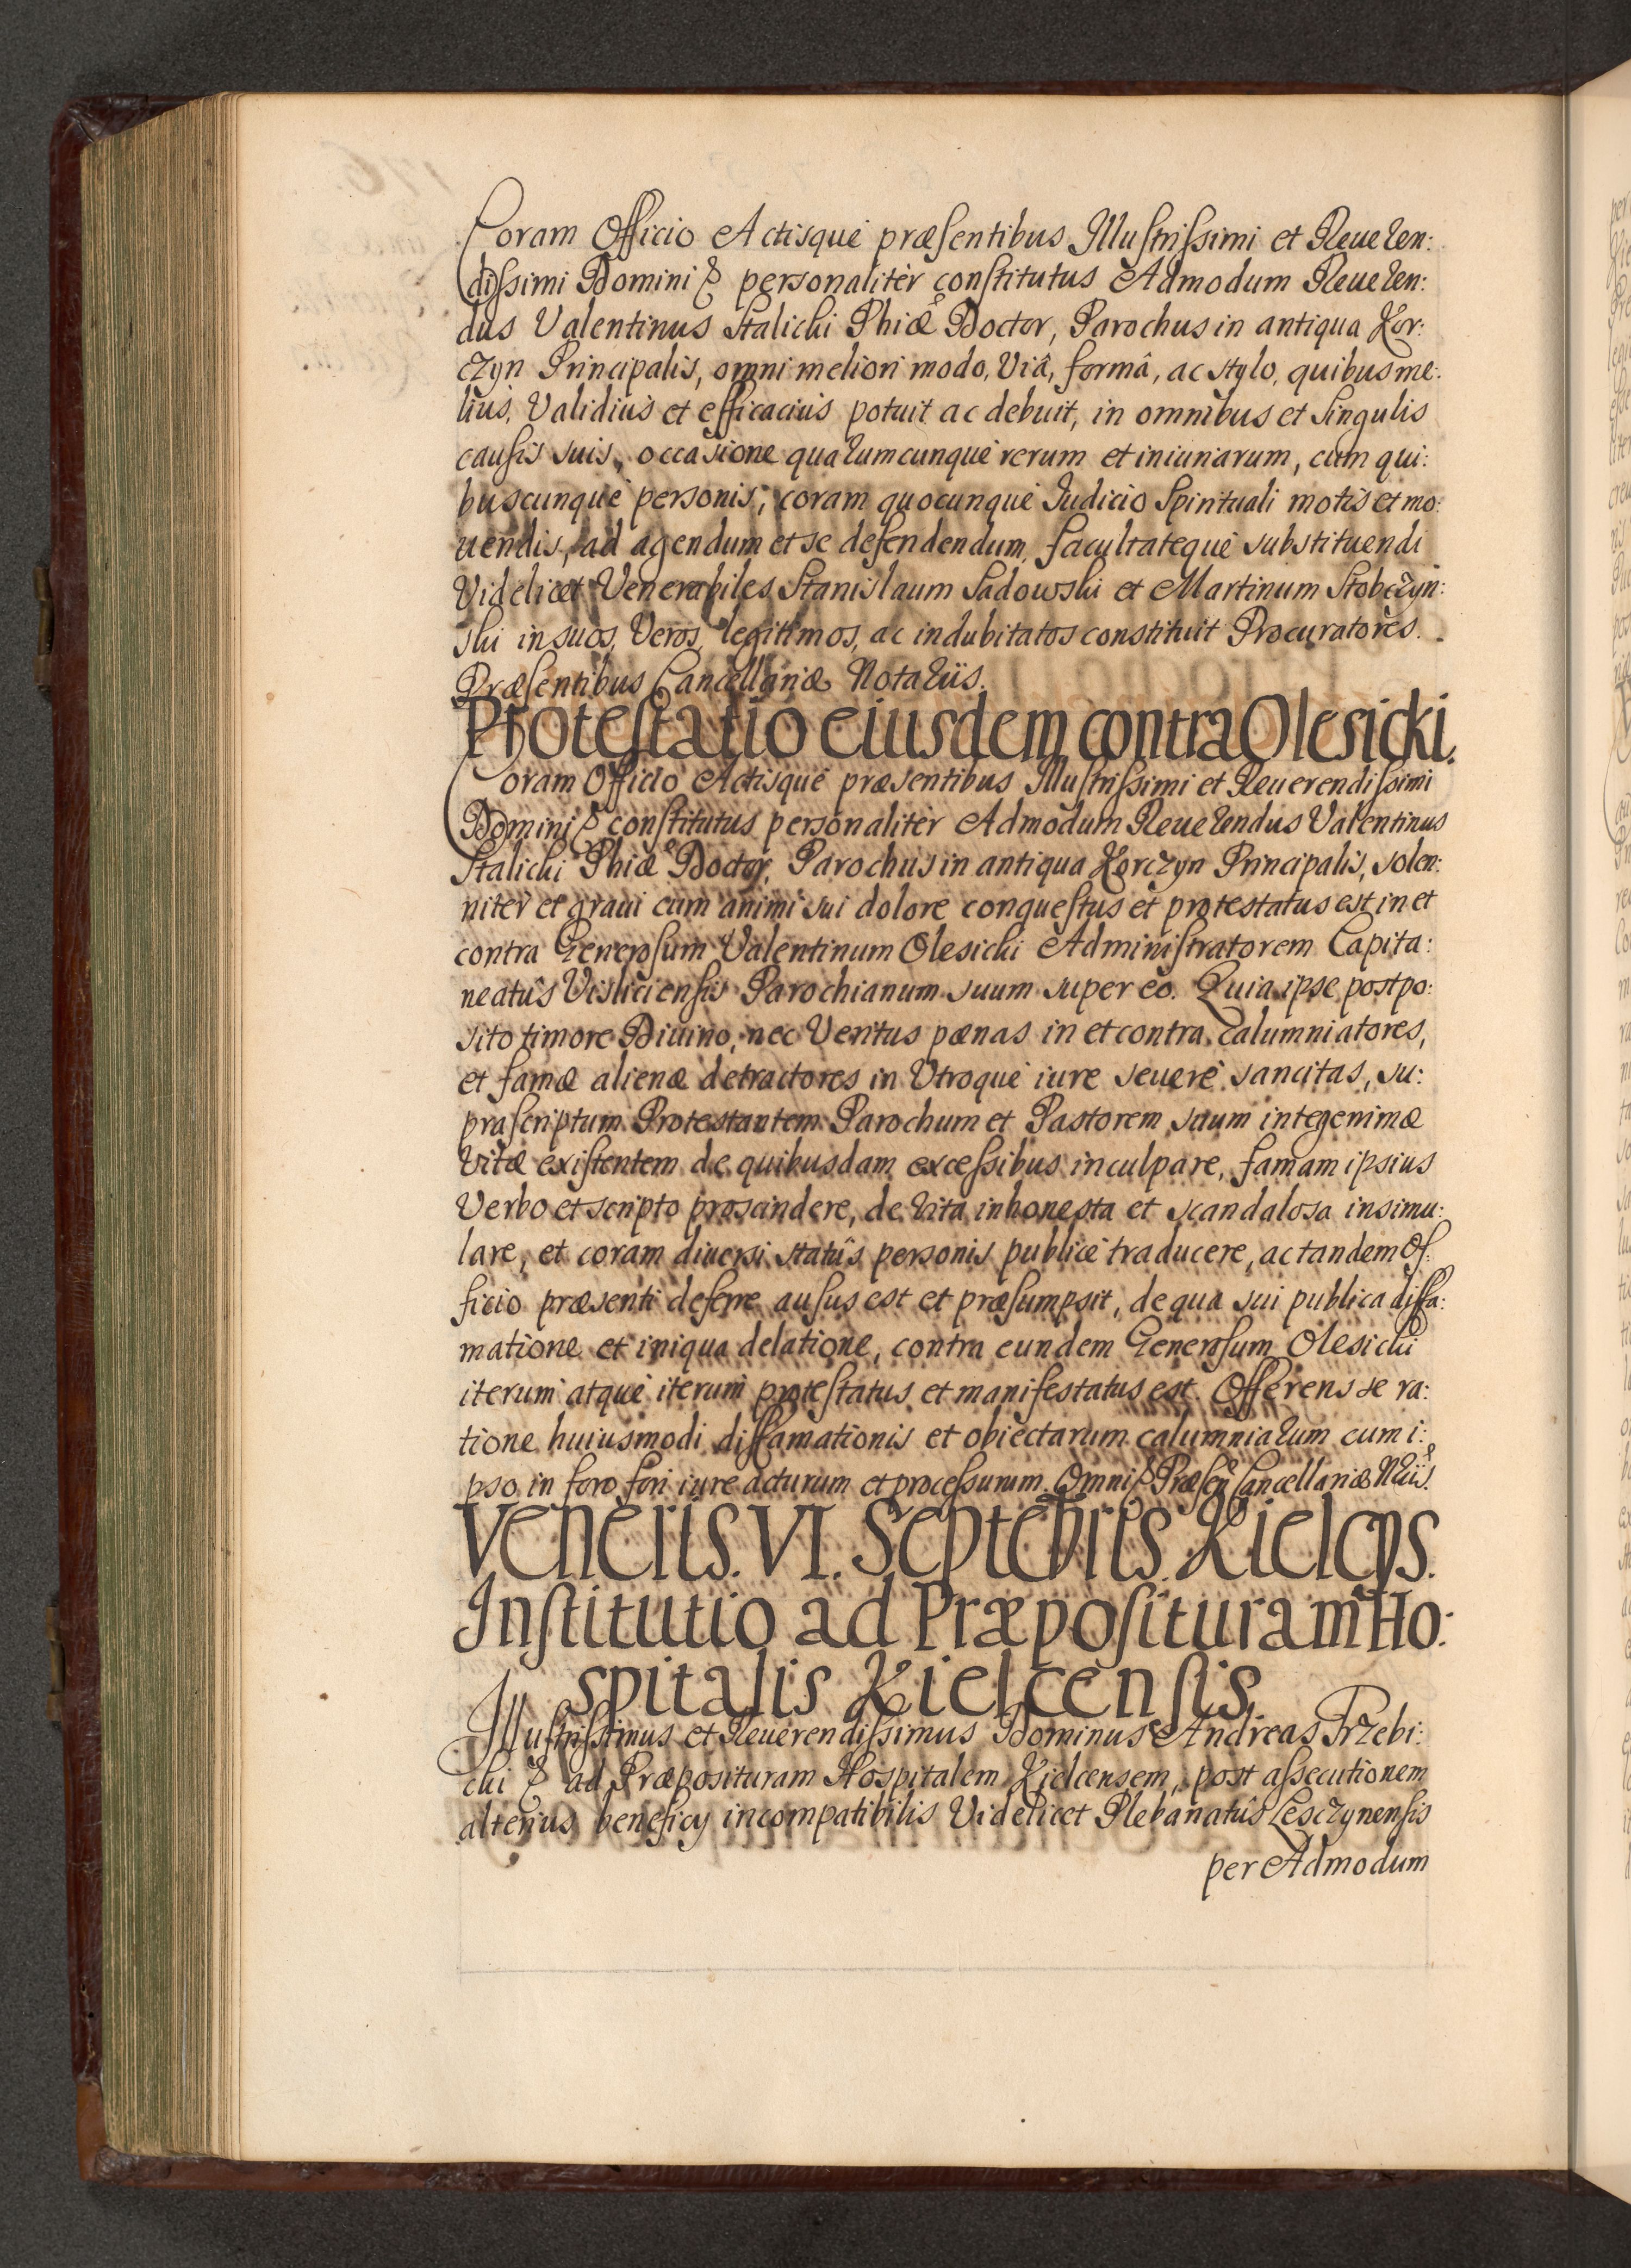 Coram Officio Actisque præsentibus Illustrissimi et Reueren:
dissimi Domini & personaliter constitutus Admodum Reueren:
dus Valentinus Stalicki Phiæ Doctor, Parochus in antiqua Kor:
czyn Principalis, omni meliori modo, Viâ, formâ, ac stylo, quibus me:
lius, Validius et efficacius potuit ac debuit, in omnibus et singulis
causis suis, occasione quarumcunque rerum et iniuriarum, cum qui:
buscunque personis, coram quocunque Iudicio Spirituali motis et mo:
uendis, ad agendum et se defendendum, facultateque substituendi
Videlicet Venerabiles Stanislaum Sadowski et Martinum Stobczyn:
ski in suos, Veros, legitimos, ac indubitatos constituit Procuratores.
Præsentibus Cancellariæ Notariis.
Protestatio eiusdem contra Olesicki.
Coram Officio Actisque præsentibus Illustrissimi et Reuerendissimi
Domini & constitutus personaliter Admodum Reuerendus Valentinus
Stalicki Phiæ Doctor, Parochus in antiqua Korczyn Principalis, solen:
niter et graui cum animi sui dolore conquestus et protestatus est in et
contra Generosum Valentinum Olesicki Administratorem Capita:
neatûs Visliciensis Parochianum suum super eo. Quia ipse postpo:
sito timore Diuino, nec Veritus pænas in et contra calumniatores,
et famæ alienæ detractores in Vtroque iure seuere sancitas, su:
prascriptum Protestantem Parochum et Pastorem suum integerrimæ
Vitæ existentem de quibusdam excessibus inculpare, famam ipsius
Verbo et scripto proscindere, de Vita inhonesta et scandalosa insimu:
lare, et coram diuersi statûs personis publice traducere, ac tandem Of:
ficio præsenti deferre ausus est et præsumpsit, de qua sui publica diffa:
matione et iniqua delatione, contra eundem Generosum Olesicki
iterum atque iterum protestatus et manifestatus est. Offerens se ra:
tione huiusmodi diffamationis et obiectarum calumniarum cum i:
pso in foro fori iure acturum et processurum. Omni & Præsen Cancellariæ Nriis.
Veneris. VI. Septebris. Kielcys.
Institutio ad Præposituram Ho:
spitalis Kielcensis
Illustrissimus et Reuerendissimus Dominus Andreas Trzebi:
cki & ad Præposituram Hospitalem Kielcensem, post assecutionem
alterius beneficy incompatibilis Videlicet Plebanatûs Lesczynensis
per Admodum